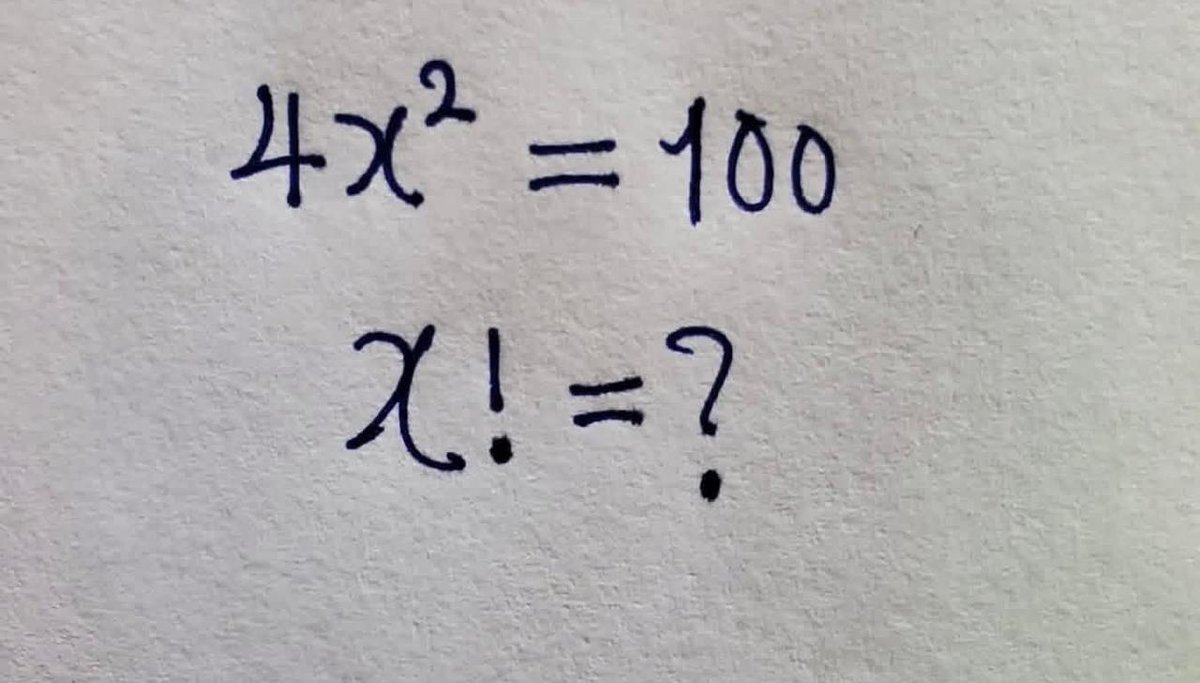 4x² = 100
x! = ?